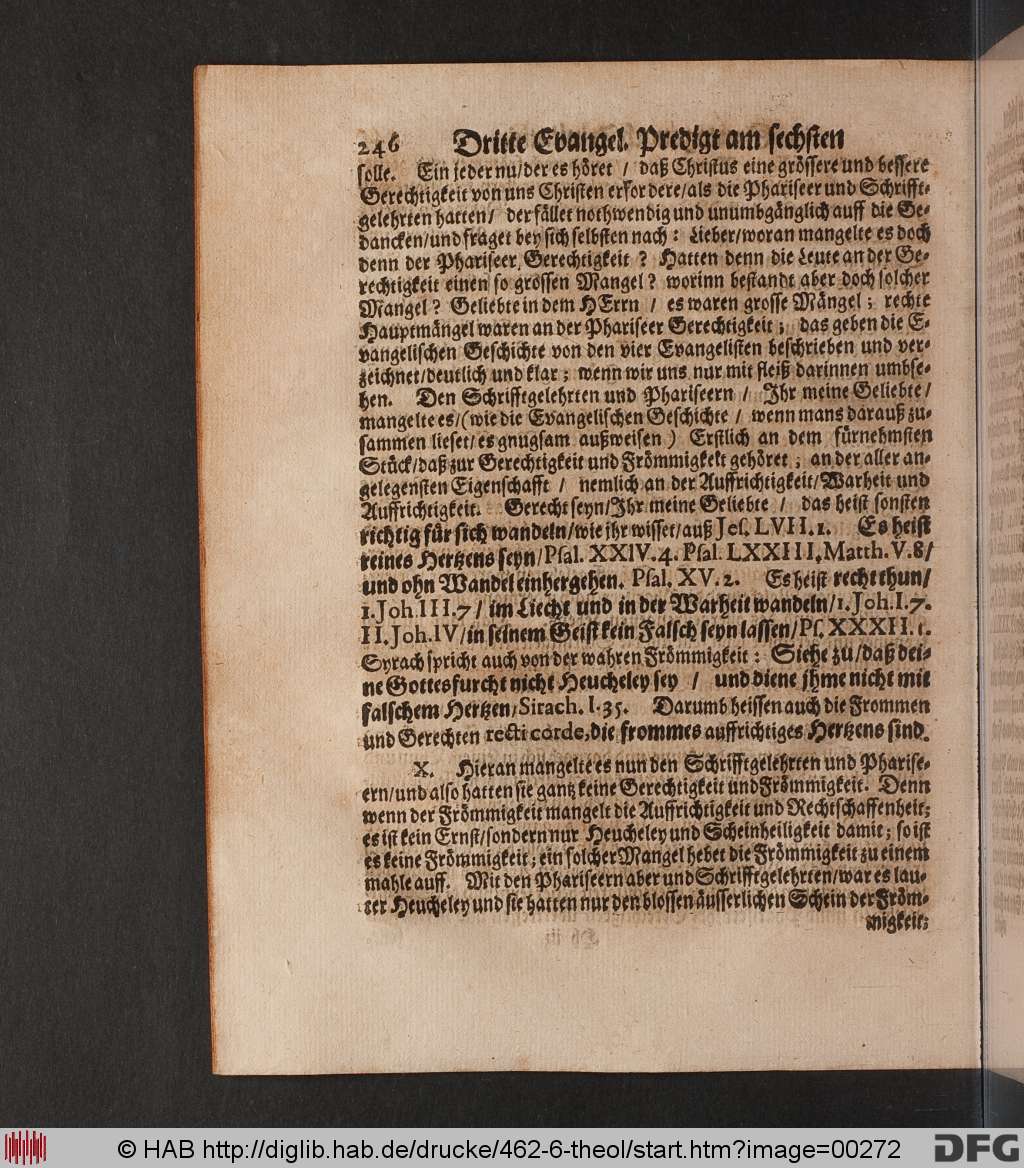 246 Dritte Evangel. Predigt am sechsten
solle. Ein jeder nu/der es höret / daß Christus eine grössere und bessere
Gerechtigkeit von uns Christen erfordere/als die Phariseer und Schrifft-
gelehrten hatten/ der fället nothwendig und unumbgänglich auff die Ge-
dancken/und fraget bey sich selbsten nach: Lieber/woran mangelte es doch
denn der Phariseer Gerechtigkeit ? Hatten denn die Leute an der Ge-
rechtigkeit einen so grossen Mangel? worinn bestandt aber doch solcher
Mangel? Geliebte in dem HErrn / es waren grosse Mängel; rechte
Hauptmängel waren an der Phariseer Gerechtigkeit; das geben die E-
vangelischen Geschichte von den vier Evangelisten beschrieben und ver-
zeichnet/deutlich und klar; wenn wir uns nur mit fleiß darinnen umbse-
hen. Den Schrifftgelehrten und Phariseern / Ihr meine Geliebte/
mangelte es/(wie die Evangelischen Geschichte / wenn mans darauß zu-
sammen lieset/es gnugsam außweisen) Erstlich an dem fürnehmsten
Stück/daß zur Gerechtigkeit und Frömmigkeit gehöret; an der aller an-
gelegensten Eigenschafft / nemlich an der Auffrichtigkeit/Warheit und
Auffrichtigkeit. Gerecht seyn/Ihr meine Geliebte / das heist sonsten
richtig für sich wandeln/wie ihr wisset/auß Jes. LVII. 1. Es heist
reines Hertzens seyn/Psal. XXIV. 4. Psal. LXXIII. Matth. V. 8/
und ohn Wandel einhergehen. Psal. XV. 2. Es heist recht thun/
1. Joh. III. 7/ im Liecht und in der Warheit wandeln/1. Joh. I. 7.
II. Joh. IV/in seinem Geist kein Falsch seyn lassen/Ps. XXXII. 1.
Syrach spricht auch von der wahren Frömmigkeit: Siehe zu/daß dei-
ne Gottesfurcht nicht Heucheley sey / und diene jhme nicht mit
falschem Hertzen/Sirach. I. 35. Darumb heissen auch die Frommen
und Gerechten recti corde, die frommes auffrichtiges Hertzens sind.
X. Hieran mangelte es nun den Schrifftgelehrten und Pharise-
ern/und also hatten sie gantz keine Gerechtigkeit und Frömmigkeit. Denn
wenn der Frömmigkeit mangelt die Auffrichtigkeit und Rechtschaffenheit;
es ist kein Ernst/sondern nur Heucheley und Scheinheiligkeit damit; so ist
es keine Frömmigkeit; ein solcher Mangel hebet die Frömmigkeit zu einem
mahle auff. Mit den Phariseern aber und Schrifftgelehrten/war es lau-
ter Heucheley und sie hatten nur den blossen äusserlichen Schein der Fröm-
migkeit;
© HAB http://diglib.hab.de/drucke/462-6-theol/start.htm?image=00272
DFG